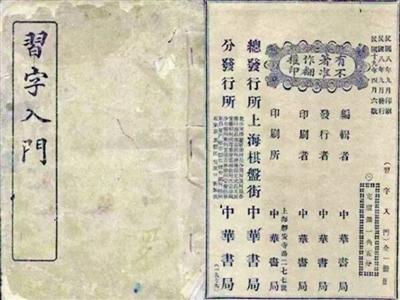 習字入門
民國八年九月印刷
民國八年九月發行
民國十九年四月六版
有著作權
不准翻印
(習字入門)全一冊
定價銀一角五分
編輯者 中華書局
發行者 中華書局
印刷者 中華書局
印刷所 上海靜安寺路二七七號 中華書局
總發行所 上海棋盤街 中華書局
分發行所 中華書局
(一八七九)